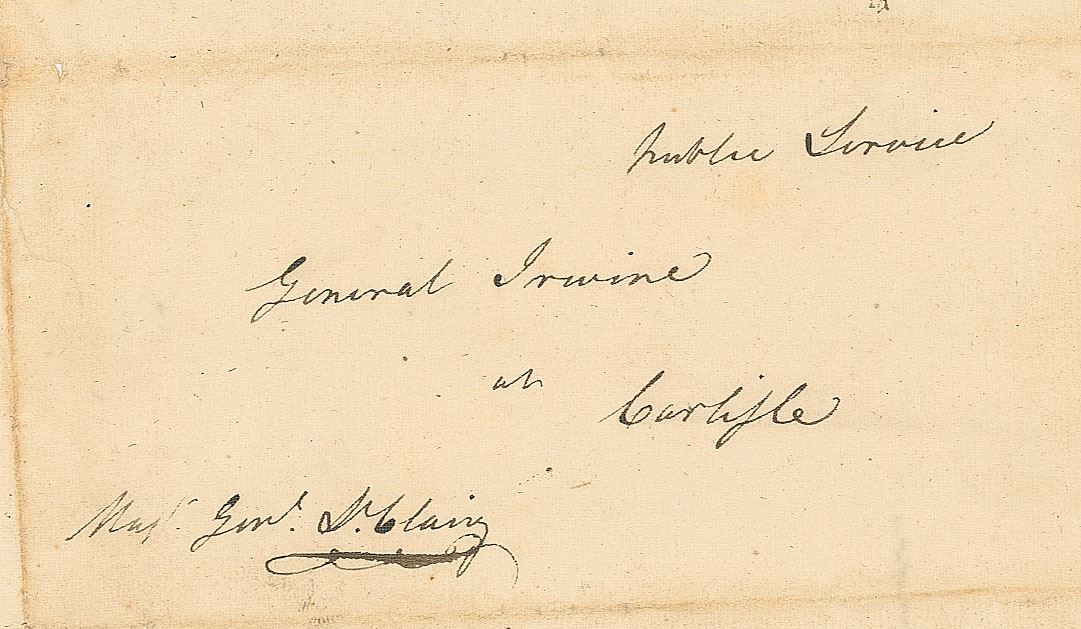 Public Service
General Irwine
at
Carlisle
Majr. Genl. St. Clair